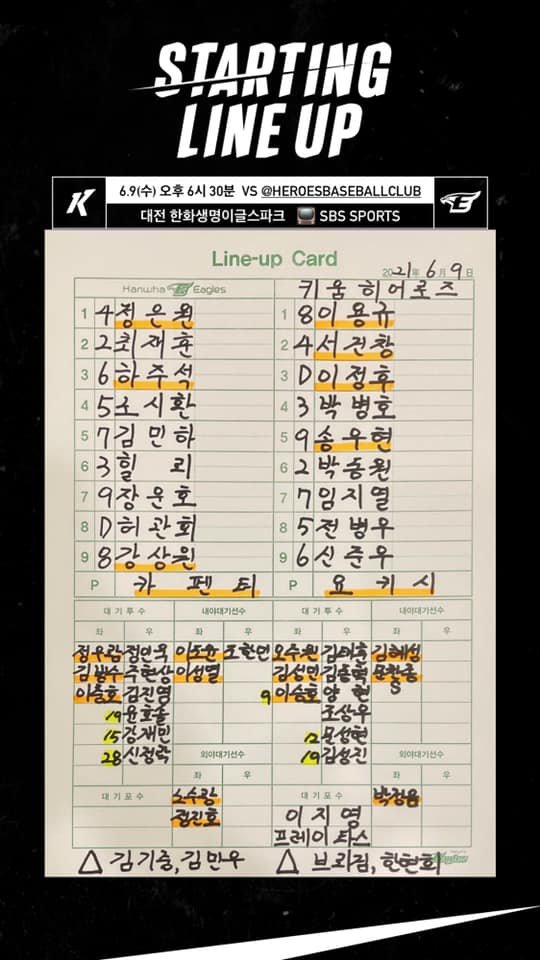 STARTING
LINE UP
K 6.9(수) 오후 6시 30분 VS @HEROESBASEBALLCLUB E
대전 한화생명이글스파크 SBS SPORTS
Line-up Card
2021年 6月 9日
Hanwha Eagles 키움히어로즈
1 4 정은원 1 8 이용규
2 2 최재훈 2 4 서건창
3 6 하주석 3 D 이정후
4 5 노시환 4 3 박병호
5 7 김민하 5 9 송우현
6 3 힐리 6 2 박동원
7 9 장운호 7 7 임지열
8 D 허관회 8 5 전병우
9 8 강상원 9 6 신준우
P 카펜터 P 요키시
대기투수 내야대기선수 대기투수 내야대기선수
좌 우 좌 우 좌 우 좌 우
정우람 정민욱 이도윤 조한민 오수원 김태훈 김혜성
김범수 주현상 이성열 김성민 김동혁 문찬종
이승호 김진영 9 이승호 양현 S
19 윤호솔 조상우
15 강재민 12 문성현
28 신정락 외야대기선수 19 김성진 외야대기선수
좌 우 좌 우
대기포수 노수광 대기포수 박정음
정진호 이지영
프레이타스
△ 김기중, 김민우 △ 브리검, 한현희